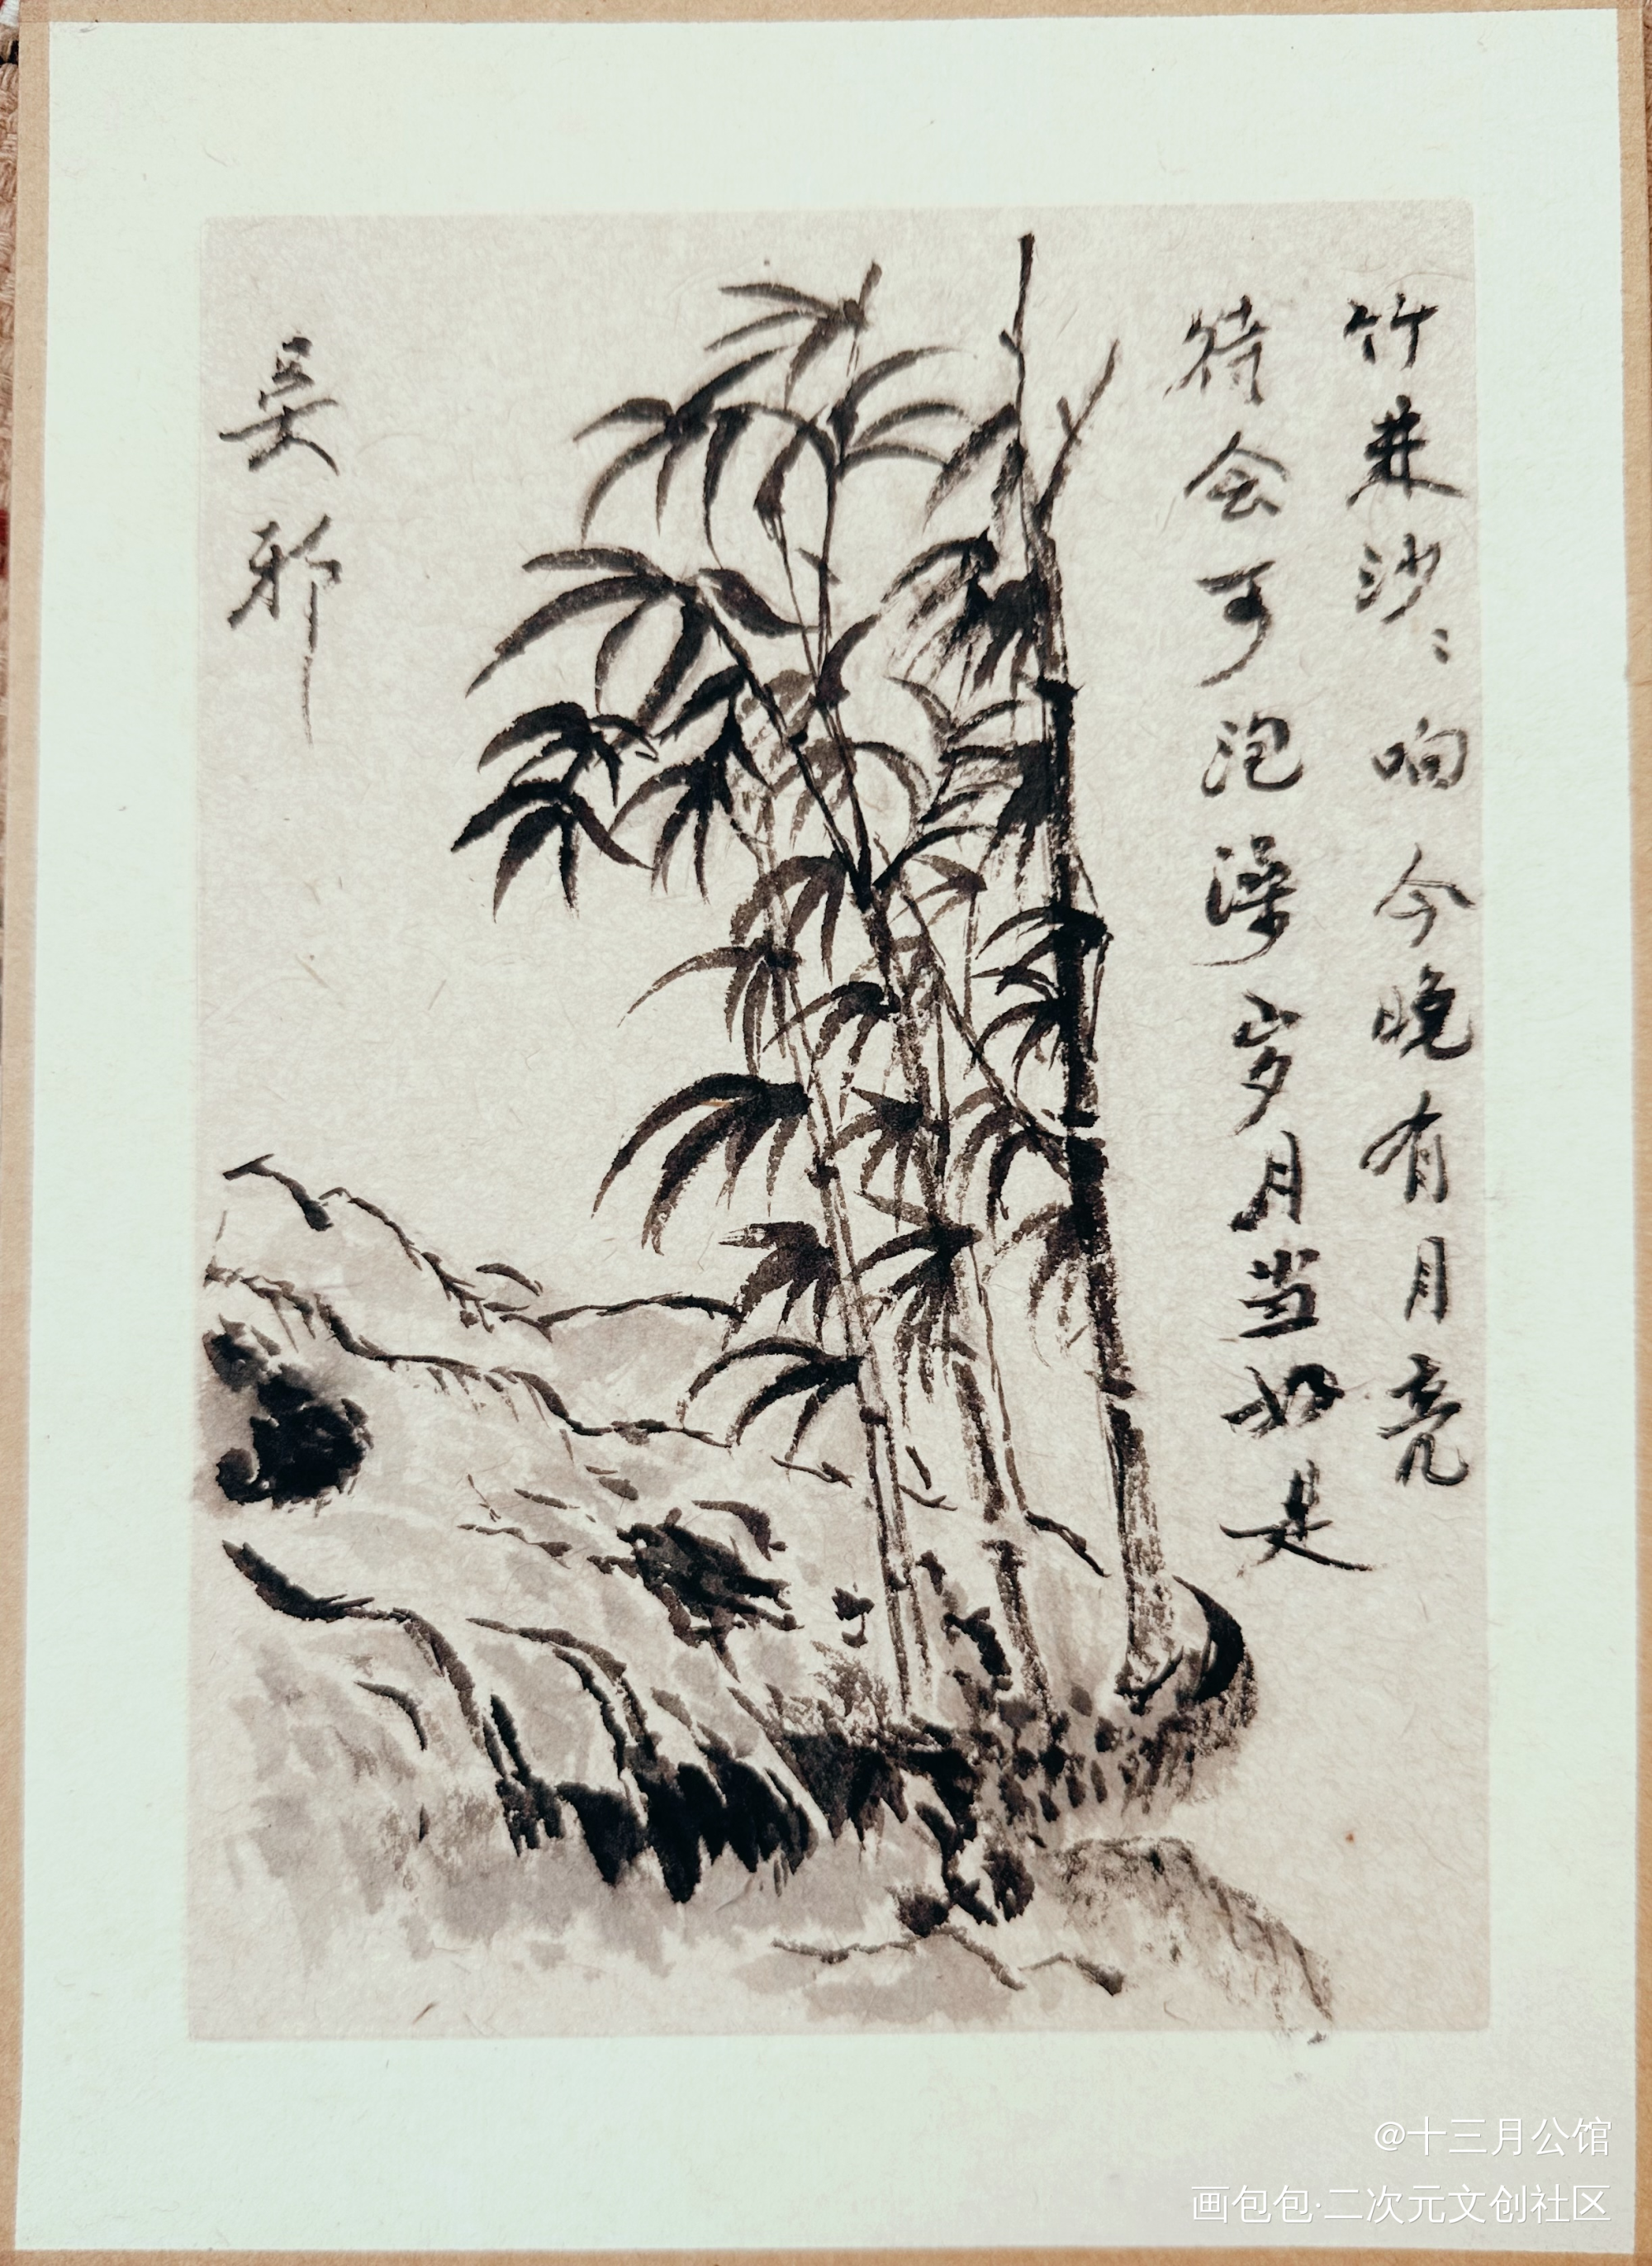 竹林沙〻响今晚有月亮
待会可泡澡岁月当如是
吴邪
@十三月公馆
画包包·二次元文创社区